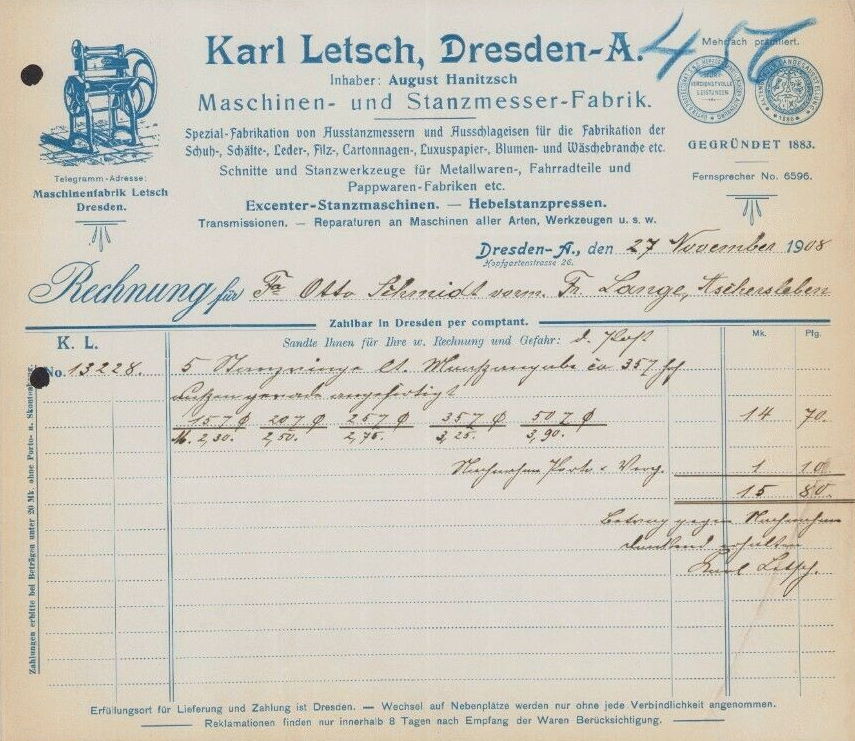 Karl Letsch, Dresden-A.
456
Mehrfach prämiiert.
Inhaber: August Hanitzsch
Maschinen- und Stanzmesser-Fabrik.
VERDIENSTVOLLE
LEISTUNGEN
Spezial-Fabrikation von Ausstanzmessern und Ausschlageisen für die Fabrikation der
Schuh-, Schäfte-, Leder-, Filz-, Cartonnagen-, Luxuspapier-, Blumen- und Wäschebranche etc.
Schnitte und Stanzwerkzeuge für Metallwaren-, Fahrradteile und
Pappwaren-Fabriken etc.
Excenter-Stanzmaschinen. — Hebelstanzpressen.
Transmissionen. — Reparaturen an Maschinen aller Arten, Werkzeugen u. s. w.
GEGRÜNDET 1883.
Fernsprecher No. 6596.
Telegramm-Adresse:
Maschinenfabrik Letsch
Dresden.
Dresden-A., den 27 November 1908
Hopfgartenstrasse 26.
Rechnung für Fa Otto Schmidt vorm. Fr. Lange, Aschersleben
Zahlbar in Dresden per comptant.
K. L.
Sandte Ihnen für Ihre w. Rechnung und Gefahr: d. Post
Mk. Pfg.
No. 13228.
5 Stanzringe lt. Maaßangabe ca 35
außen gerade angefertigt
15 20 25 35 50
M. 2,30. 2,50. 2,75. 3,25. 3,90.
14 70.
Nachnahme Porto u. Verp. 1 10
15 80.
Betrag gegen Nachnahme
dankend erhalten
Karl Letsch.
Zahlungen erbitte bei Beträgen unter 20 Mk. ohne Porto- u. Skontoabzug.
Erfüllungsort für Lieferung und Zahlung ist Dresden. — Wechsel auf Nebenplätze werden nur ohne jede Verbindlichkeit angenommen.
Reklamationen finden nur innerhalb 8 Tagen nach Empfang der Waren Berücksichtigung.